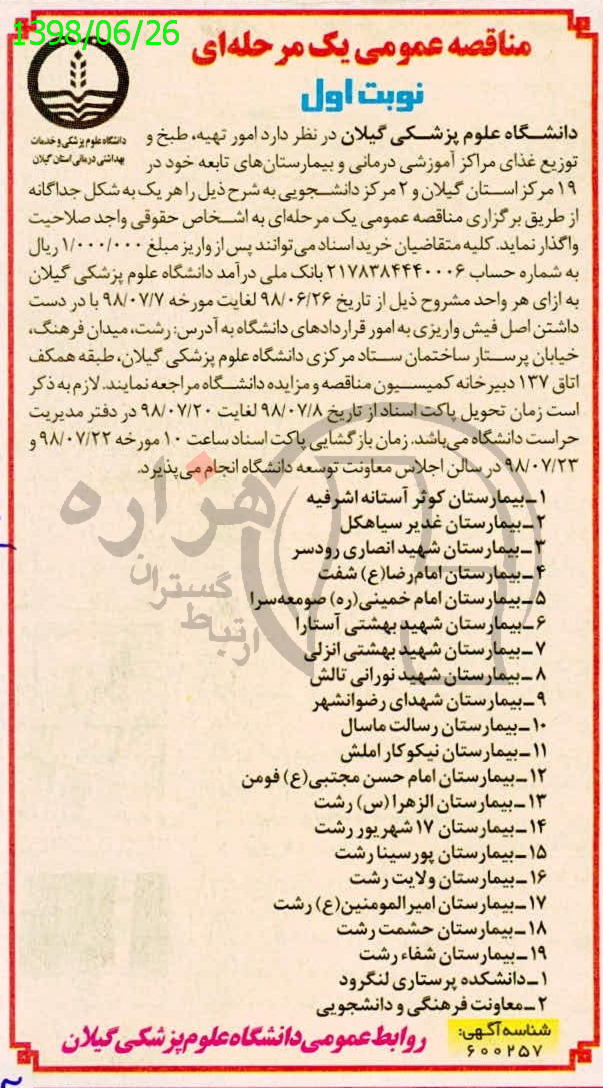 1398/06/26
مناقصه عمومی یک مرحله‌ای
نوبت اول
دانشگاه علوم پزشکی و خدمات
بهداشتی درمانی استان گیلان
دانشگاه علوم پزشکی گیلان در نظر دارد امور تهیه، طبخ و
توزیع غذای مراکز آموزشی درمانی و بیمارستان‌های تابعه خود در
۱۹ مرکز استان گیلان و ۲ مرکز دانشجویی به شرح ذیل را هر یک به شکل جداگانه
از طریق برگزاری مناقصه عمومی یک مرحله‌ای به اشخاص حقوقی واجد صلاحیت
واگذار نماید. کلیه متقاضیان خرید اسناد می‌توانند پس از واریز مبلغ ۱/۰۰۰/۰۰۰ ریال
به شماره حساب ۲۱۷۸۳۸۴۴۴۰۰۰۶ بانک ملی درآمد دانشگاه علوم پزشکی گیلان
به ازای هر واحد مشروح ذیل از تاریخ ۹۸/۰۶/۲۶ لغایت مورخه ۹۸/۰۷/۷ با در دست
داشتن اصل فیش واریزی به امور قراردادهای دانشگاه به آدرس: رشت، میدان فرهنگ،
خیابان پرستار ساختمان ستاد مرکزی دانشگاه علوم پزشکی گیلان، طبقه همکف
اتاق ۱۳۷ دبیرخانه کمیسیون مناقصه و مزایده دانشگاه مراجعه نمایند. لازم به ذکر
است زمان تحویل پاکت اسناد از تاریخ ۹۸/۰۷/۸ لغایت ۹۸/۰۷/۲۰ در دفتر مدیریت
حراست دانشگاه می‌باشد. زمان بازگشایی پاکت اسناد ساعت ۱۰ مورخه ۹۸/۰۷/۲۲ و
۹۸/۰۷/۲۳ در سالن اجلاس معاونت توسعه دانشگاه انجام می‌پذیرد.
۱ـ بیمارستان کوثر آستانه اشرفیه
۲ـ بیمارستان غدیر سیاهکل
۳ـ بیمارستان شهید انصاری رودسر
۴ـ بیمارستان امام رضا(ع) شفت
۵ـ بیمارستان امام خمینی(ره) صومعه‌سرا
۶ـ بیمارستان شهید بهشتی آستارا
۷ـ بیمارستان شهید بهشتی انزلی
۸ـ بیمارستان شهید نورانی تالش
۹ـ بیمارستان شهدای رضوانشهر
۱۰ـ بیمارستان رسالت ماسال
۱۱ـ بیمارستان نیکوکار املش
۱۲ـ بیمارستان امام حسن مجتبی(ع) فومن
۱۳ـ بیمارستان الزهرا (س) رشت
۱۴ـ بیمارستان ۱۷ شهریور رشت
۱۵ـ بیمارستان پورسینا رشت
۱۶ـ بیمارستان ولایت رشت
۱۷ـ بیمارستان امیرالمومنین(ع) رشت
۱۸ـ بیمارستان حشمت رشت
۱۹ـ بیمارستان شفاء رشت
۱ـ دانشکده پرستاری لنگرود
۲ـ معاونت فرهنگی و دانشجویی
شناسه آگهی:
۶۰۰۲۵۷
روابط عمومی دانشگاه علوم پزشکی گیلان
هزاره
گستران
ارتباط